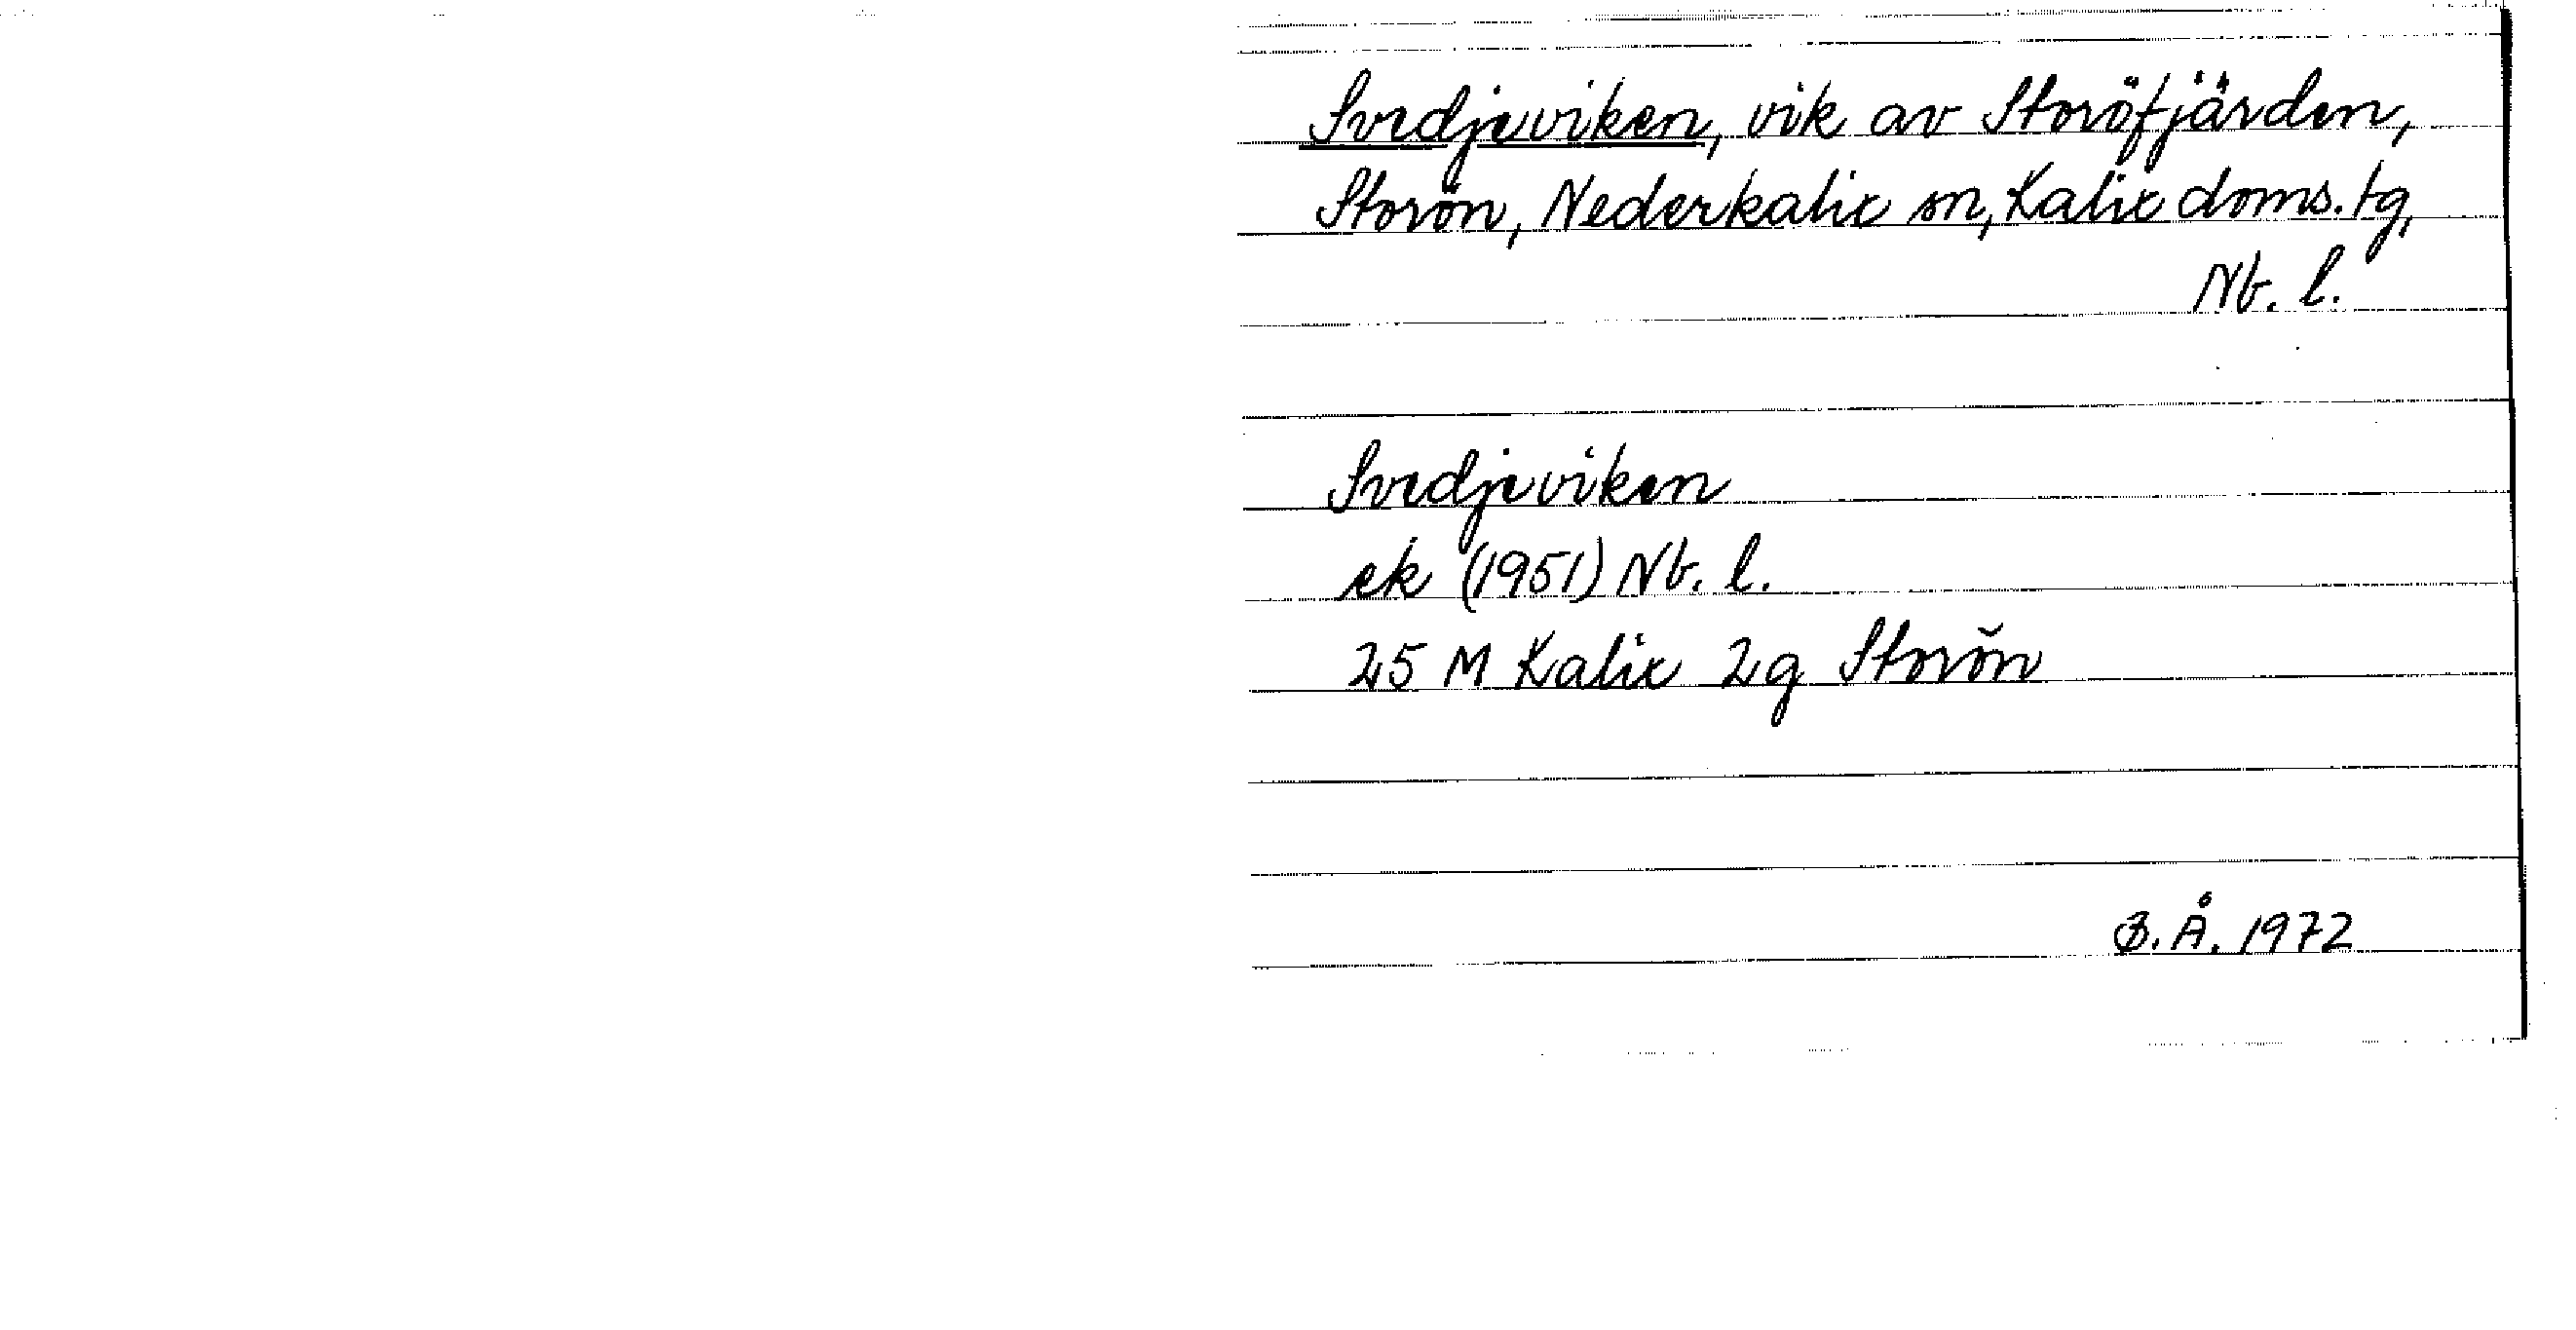 Svedjeviken, vik av Storöfjärden,
Storön, Nederkalix sn, Kalix doms. tg,
Nb. l.
Svedjeviken
ek (1951) Nb. l.
25 M Kalix 2g Storön
B. Å. 1972